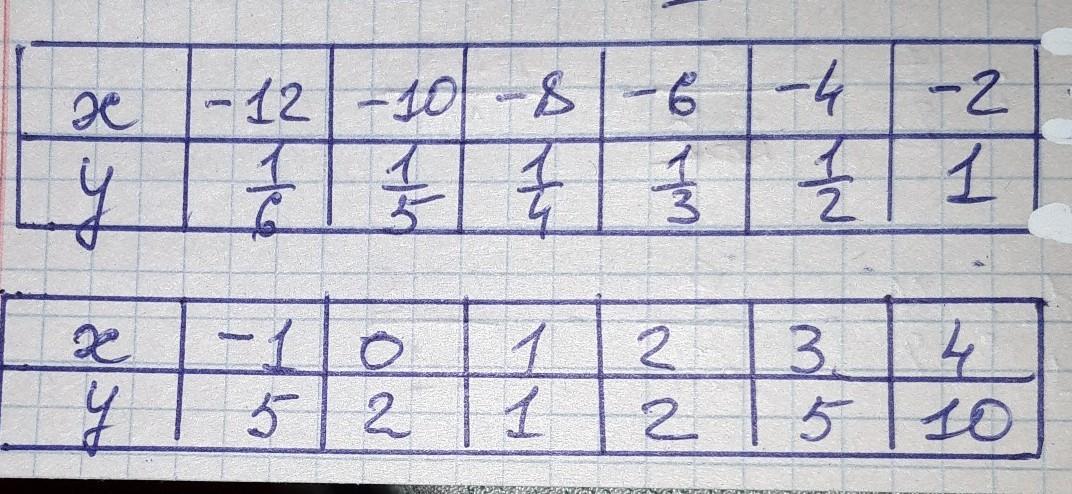 x -12 -10 -8 -6 -4 -2
y 1/6 1/5 1/4 1/3 1/2 1
x -1 0 1 2 3 4
y 5 2 1 2 5 10